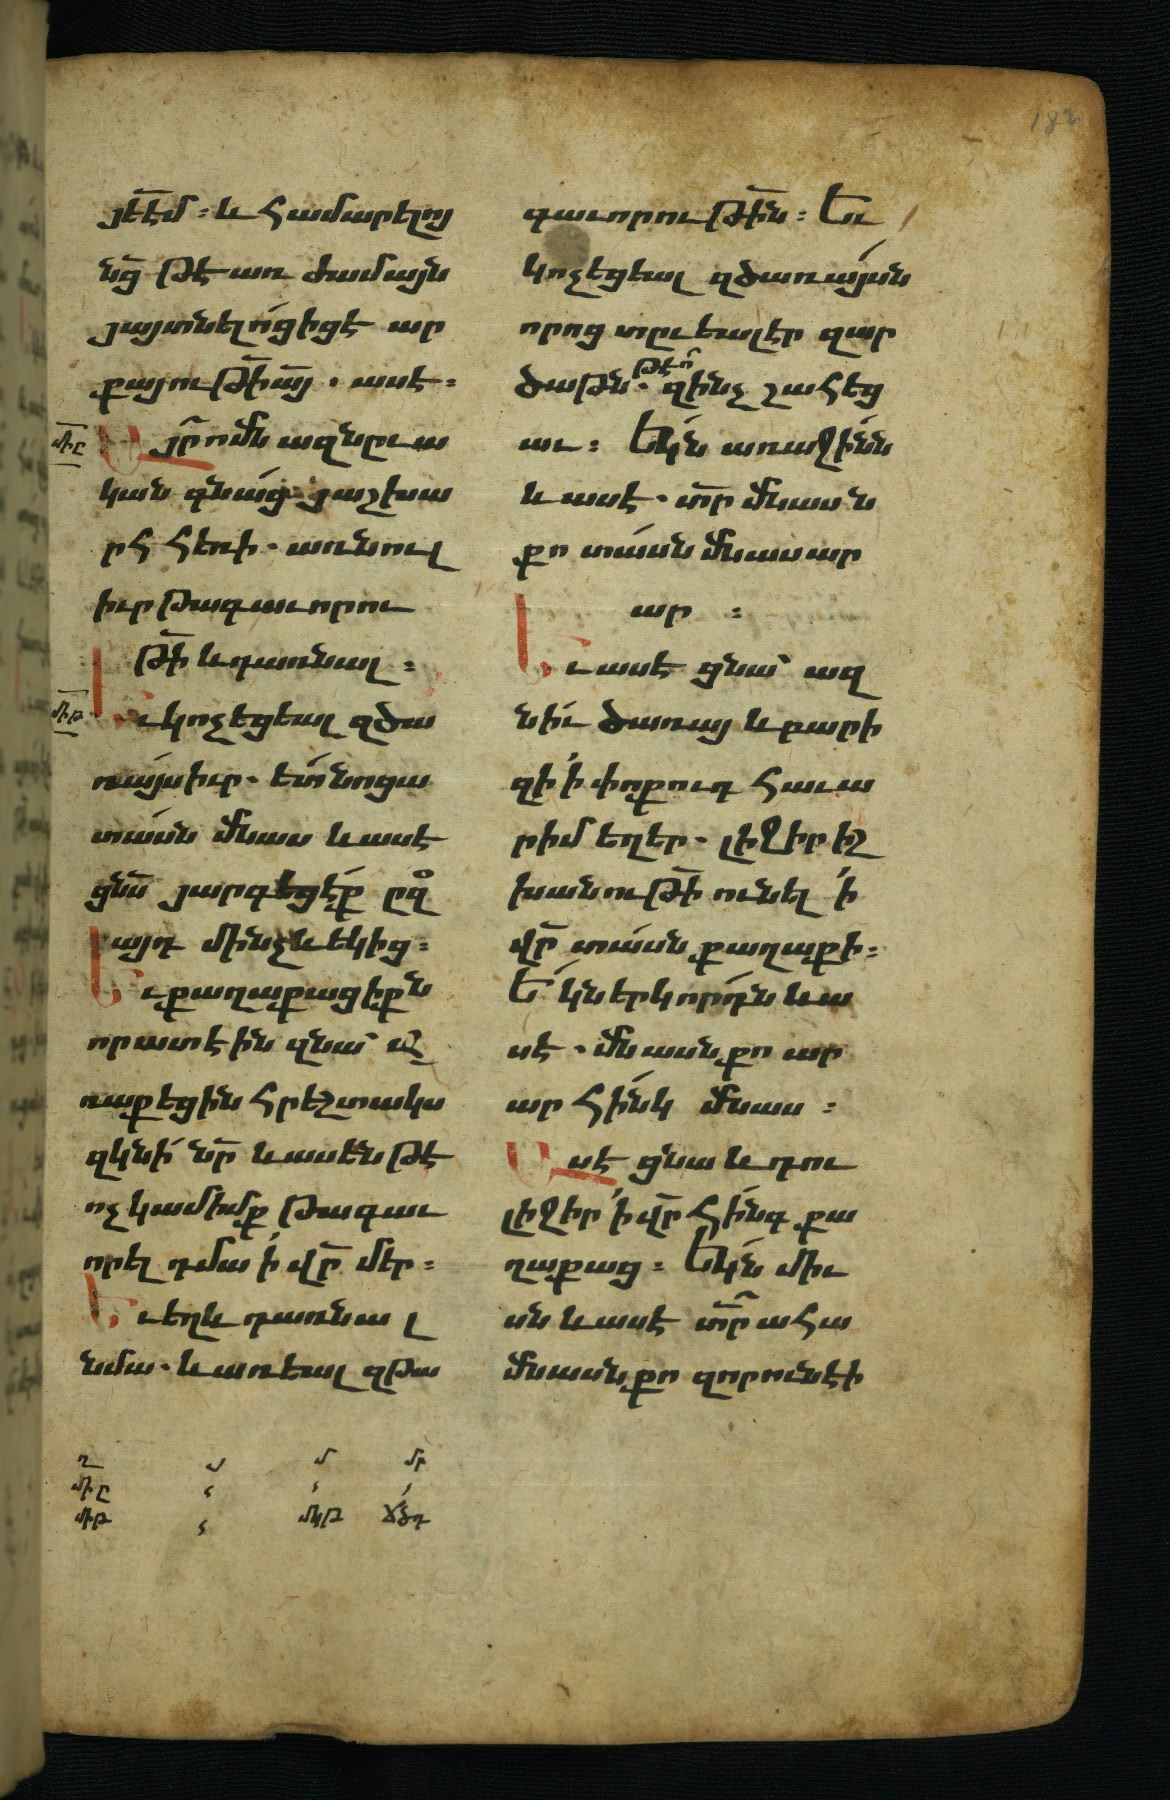 182
յէ՟էմ։ և համարելոյ
նց՟ թէ առ ժամայն
յայտնելոցիցէ ար
քայութի՟ ա՟յ. ասէ։
մի՟ը
Այր՟ ոմն ազնըւա
կան գնաց յաշխա
րհ հեռի. առնուլ
իւր թագաւորու
թի՟ և դառնալ։
մի՟թ
Եւ կոչեցեալ զծա
ռայսիւր. ետ նոցա
տասն մնաս և ասէ
ցնս՟ յարգեցէք ըզ
այդ մինչև եկից։
Եւ քաղաքացիքն
որ ատէին զնա՝
առաքեցին հրեշտակս
զկնի նր՟ և ասեն թէ
ոչ կամիմք թագաւ
որել դմա ՚ի վր՟ մեր։
Եւ եղև դառնալ
նմա. և առեալ զթա
գաւորութի՟ն։ Եւ
կոչեցեալ զծառայսն
որոց տըւեալէր զար
ծաթն. թէ զինչ շահեց
աւ։ Եկն առաջինն
և ասէ. տր՟ մնասն
քո տասն մնաս ար
ար։
Եւ ասէ ցնա՝ ազ
նիւ ծառայ և բարի
զի ՚ի փոքուդ հաւա
րիմ եղեր. լիջիր իշ
խանութի՟ ունել ՚ի
վր՟ տասն քաղաքի։
Եկն երկորդն և ա
սէ. մնասն քո ար
ար հինկ մնաս։
Ասէ ցնա և դու
լիջիր ՚ի վր՟ հինգ քա
ղաքաց։ Եկն միւ
սն և ասէ տր՟ ահա
մնասն քո զոր ունէի
միը
միթ
մկթ